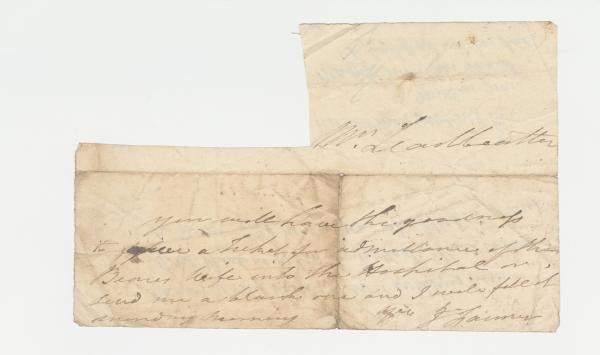 Mrs Leadbeatter
you will have the goodness
to give a Ticket for admittance of the
Bearer wife into the Hospital or
send me a blank one and I will fill it
munday morning
J Farmer